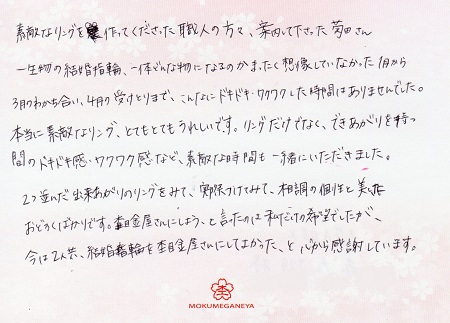 素敵なリングを作ってくださった職人の方々、案内して下さった夢田さん
一生物の結婚指輪、一体どんな物になるのかまったく想像していなかった1月から
3月のわかち合い、4月の受けとりまで、こんなにドキドキ・ワクワクした時間はありませんでした。
本当に素敵なリング、とてもとてもうれしいです。リングだけでなく、できあがりを待つ
間のドキドキ感・ワクワク感など、素敵な時間も一緒にいただきました。
2つ並んだ出来あがりのリングをみて、実際つけてみて、木目調の個性と美しさに
おどろくばかりです。杢目金屋さんにしよう、と言ったのは私だけの希望でしたが、
今は2人共、結婚指輪を杢目金屋さんにしてよかった、と心から感謝しています。
MOKUMEGANEYA